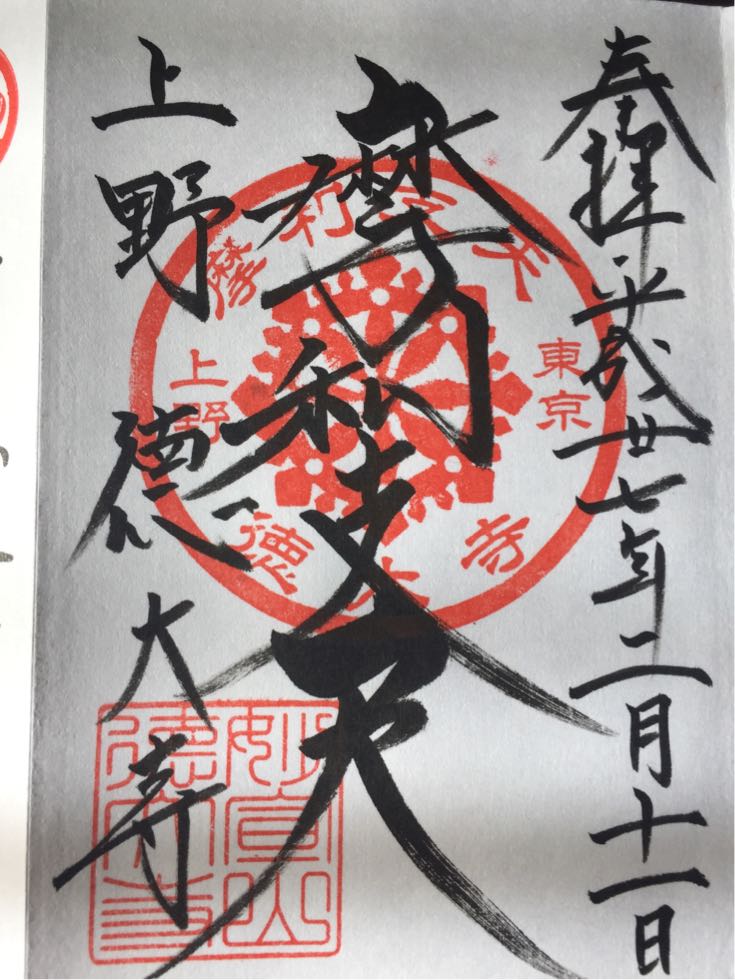 奉拝平成廿七年二月十一日
摩利支天
上野徳大寺
摩利支天
東京
上野
徳大寺
妙宣山
徳大寺